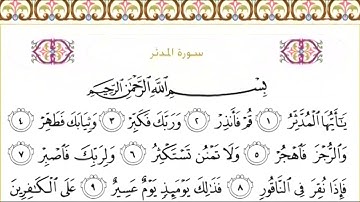 سورة المدثر
بِسْمِ اللَّهِ الرَّحْمَٰنِ الرَّحِيمِ
يَٰٓأَيُّهَا ٱلْمُدَّثِّرُ ١ قُمْ فَأَنذِرْ ٢ وَرَبَّكَ فَكَبِّرْ ٣ وَثِيَابَكَ فَطَهِّرْ ٤
وَٱلرُّجْزَ فَٱهْجُرْ ٥ وَلَا تَمْنُن تَسْتَكْثِرُ ٦ وَلِرَبِّكَ فَٱصْبِرْ ٧
فَإِذَا نُقِرَ فِى ٱلنَّاقُورِ ٨ فَذَٰلِكَ يَوْمَئِذٍ يَوْمٌ عَسِيرٌ ٩ عَلَى ٱلْكَٰفِرِينَ